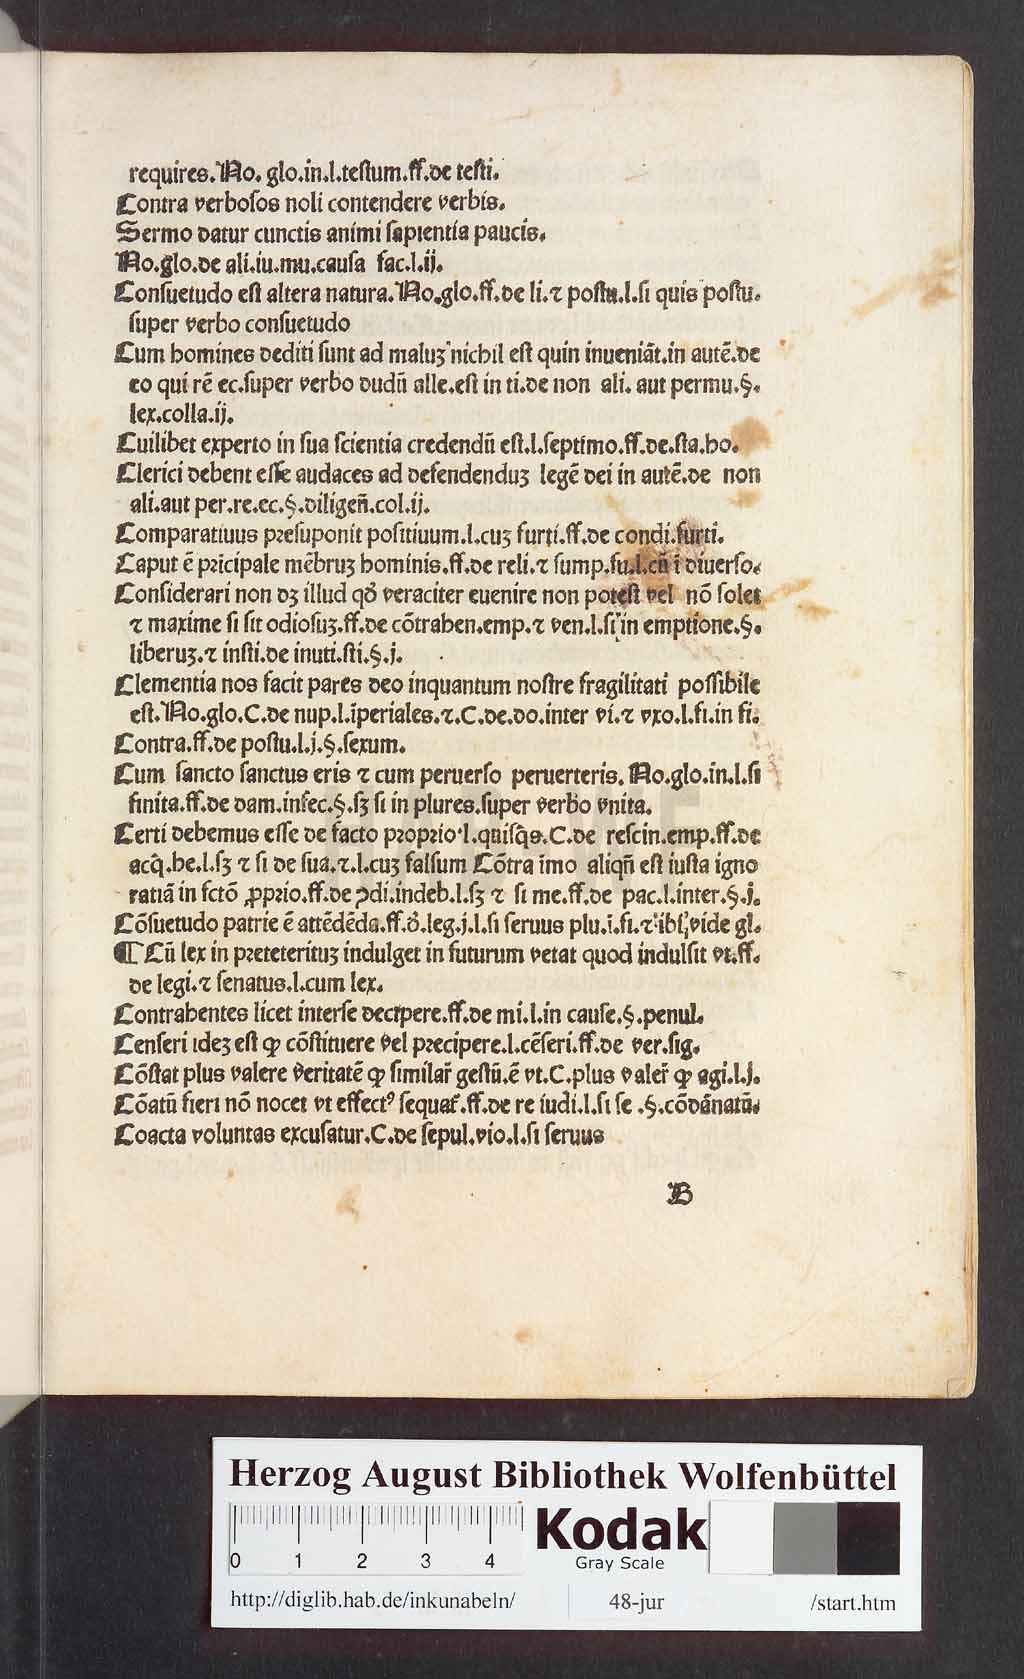 requires.No. glo.in.l.testum.ff.de testi.
Contra verbosos noli contendere verbis.
Sermo datur cunctis animi sapientia paucis.
No.glo.de ali.iu.mu.causa fac.l.ij.
Consuetudo est altera natura.No.glo.ff.de li.⁊ postu.l.si quis postu.
super verbo consuetudo
Cum homines dediti sunt ad maluʒ nichil est quin inueniāt.in autē.de
eo qui rē ec.super verbo dudū alle.est in ti.de non ali. aut permu.§.
lex.colla.ij.
Cuilibet experto in sua scientia credendū est.l.septimo.ff.de.sta.ho.
Clerici debent esse audaces ad defendenduʒ legē dei in autē.de non
ali.aut per.re.ec.§.diligeñ.col.ij.
Comparatiuus presuponit positiuum.l.cuʒ furti.ff.de condi.furti.
Caput ē pricipale mēbruʒ hominis.ff.de reli.⁊ sump.fu.l.cū i diuerso.
Considerari non dʒ illud qď veraciter euenire non potest vel nō solet
⁊ maxime si sit odiosuʒ.ff.de cōtrahen.emp.⁊ ven.l.si in emptione.§.
liberuʒ.⁊ insti.de inuti.sti.§.j.
Clementia nos facit pares deo inquantum nostre fragilitati possibile
est.No.glo.C.de nup.l.īperiales.⁊.C.de.do.inter vi.⁊ vxo.l.fi.in fi.
Contra.ff.de postu.l.j.§.sexum.
Cum sancto sanctus eris ⁊ cum peruerso peruerteris. No.glo.in.l.si
finita.ff.de dam.infec.§.sʒ si in plures.super verbo vnita.
Certi debemus esse de facto proprio.l.quisq̃s.C.de rescin.emp.ff.de
acq̃.he.l.sʒ ⁊ si de sua.⁊.l.cuʒ falsum Cōtra imo aliqñ est iusta igno
ratiā in fctō ꝓprio.ff.de ꝯdi.indeb.l.sʒ ⁊ si me.ff.de pac.l.inter.§.j.
Cōsuetudo patrie ē attēdēda.ff.ď.leg.j.l.si seruus plu.i.fi.⁊ ibi vide gl.
¶ Cū lex in preteterituʒ indulget in futurum vetat quod indulsit vt.ff.
de legi.⁊ senatus.l.cum lex.
Contrahentes licet interse decipere.ff.de mi.l.in cause.§.penul.
Censeri ideʒ est ꝙ cōstituere vel precipere.l.cēseri.ff.de ver.sig.
Cōstat plus valere veritatē ꝙ similar̃ gestū.ē vt.C.plus valer̃ ꝙ agi.l.j.
Cōatū fieri nō nocet vt effectꝰ sequat̃.ff.de re iudi.l.si se .§.cōdānatū.
Coacta voluntas excusatur.C.de sepul.vio.l.si seruus
B
HAB WF
Herzog August Bibliothek Wolfenbüttel
0 1 2 3 4
Kodak
Gray Scale
http://diglib.hab.de/inkunabeln/ 48-jur /start.htm